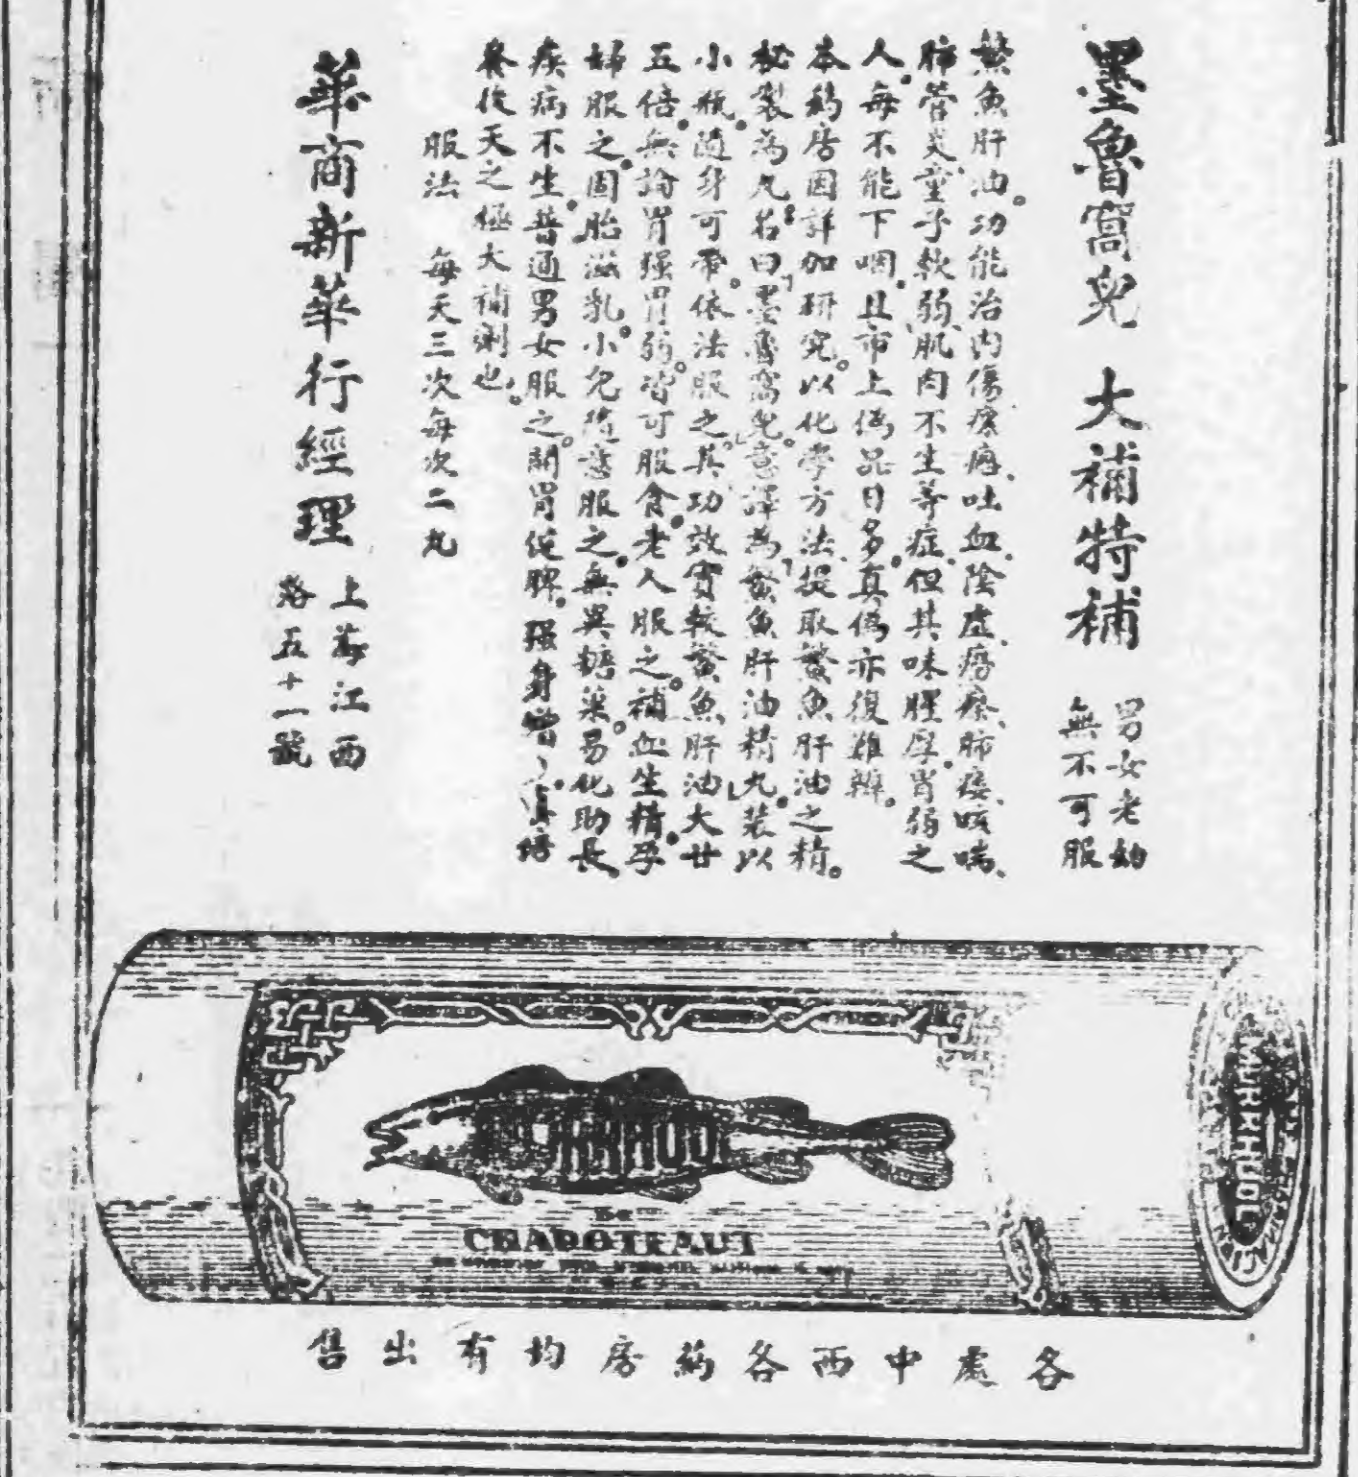 墨魯窩兒 大補特補
男女老幼
無不可服
鰵魚肝油。功能治內傷瘰癧、吐血、陰虛癆瘵、肺痿、咳喘、
肺管炎、童子軟弱、肌肉不生等症、但其味腥厚。胃弱之
人。每不能下咽。且市上偽品日多。真偽亦復難辨。
本藥房因詳加研究。以化學方法、提取鰵魚肝油之精。
秘製為丸。名曰「墨魯窩兒」。意譯為「鰵魚肝油精丸」。裝以
小瓶。隨身可帶。依法服之。其功效實較鰵魚肝油大廿
五倍。無論胃强胃弱。皆可服食。老人服之。補血生精。孕
婦服之。固胎滋乳。小兒隨意服之。無異糖菓。易化助長、
疾病不生。普通男女服之。開胃健脾。强身 培
養後天之極大補劑也。
服法 每天三次每次二丸
華商新華行經理
上海江西
路五十一號
MURKHUOL
CHAPOTEAUT
各處中西各藥房均有出售